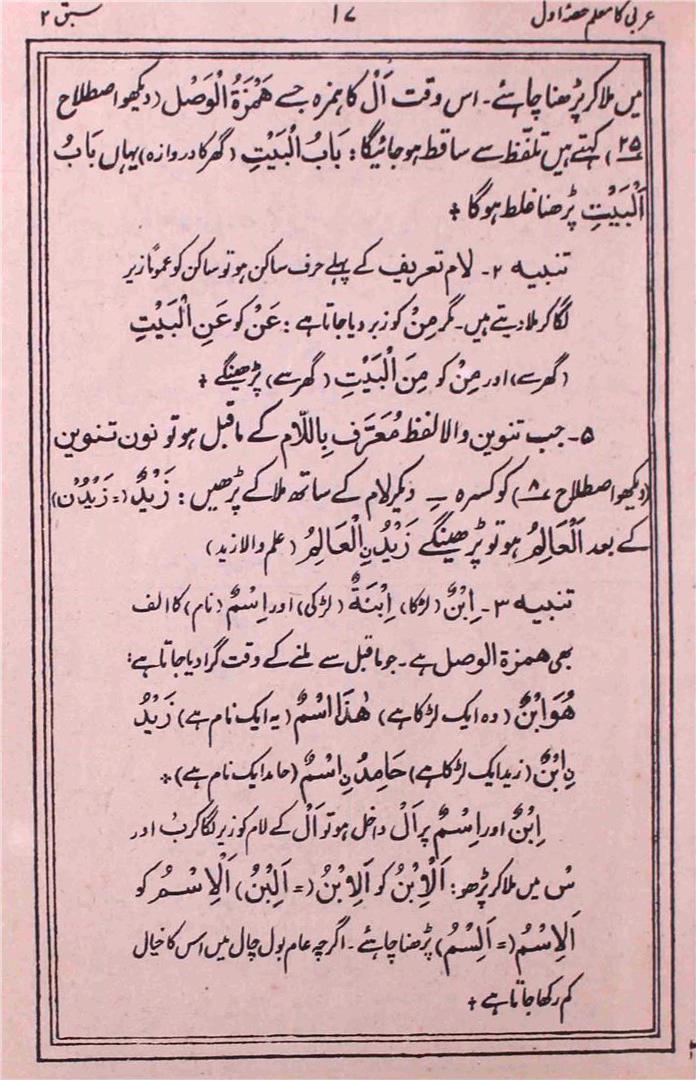 عربی کا معلم حصۂ اول ۱۷ سبق ۲
میں ملا کر پڑھنا چاہئے۔ اس وقت اَلْ کا ہمزہ جسے هَمْزَةُ الْوَصْل (دیکھو اصطلاح
۲۵) کہتے ہیں تلفّظ سے ساقط ہو جائیگا: بَابُ الْبَيْتِ (گھر کا دروازہ) یہاں بَابُ
اَلْبَيْتِ پڑھنا غلط ہوگا +
تنبیہ ۲۔ لام تعریف کے پہلے حرف ساکن ہو تو ساکن کو عموماً زیر
لگا کر ملا دیتے ہیں۔ مگر مِنْ کو زبر دیا جاتا ہے: عَنْ کو عَنِ الْبَيْتِ
(گھر سے) اور مِنْ کو مِنَ الْبَيْتِ (گھر سے) پڑھینگے +
۵۔ جب تنوین والا لفظ مُعَرَّف بِاللَّام کے ماقبل ہو تو نون تنوین
(دیکھو اصطلاح ۸) کو کسرہ ـِ دیکر لام کے ساتھ ملا کے پڑھیں: زَيْدٌ (= زَيْدُنْ)
کے بعد اَلْعَالِمُ ہو تو پڑھینگے زَيْدُنِ الْعَالِمُ (علم والا زید)
تنبیہ ۳۔ اِبْنٌ (لڑکا) اِبْنَةٌ (لڑکی) اور اِسْمٌ (نام) کا الف
بھی همزة الوصل ہے۔ جو ماقبل سے ملنے کے وقت گرا دیا جاتا ہے:
هُوَ ابْنٌ (وہ ایک لڑکا ہے) هٰذَا اسْمٌ (یہ ایک نام ہے) زَيْدُ
نِ ابْنٌ (زید ایک لڑکا ہے) حَامِدُ نِ اسْمٌ (حامد ایک نام ہے) +
اِبْنٌ اور اِسْمٌ پر اَلْ داخل ہو تو اَلْ کے لام کو زیر لگا کر بْ اور
سْ میں ملا کر پڑھو: اَلْاِبْنُ کو اَلِابْنُ (= اَلِبْنُ) اَلْاِسْمُ کو
اَلِاسْمُ (= اَلِسْمُ) پڑھنا چاہئے۔ اگرچہ عام بول چال میں اس کا خیال
کم رکھا جاتا ہے +